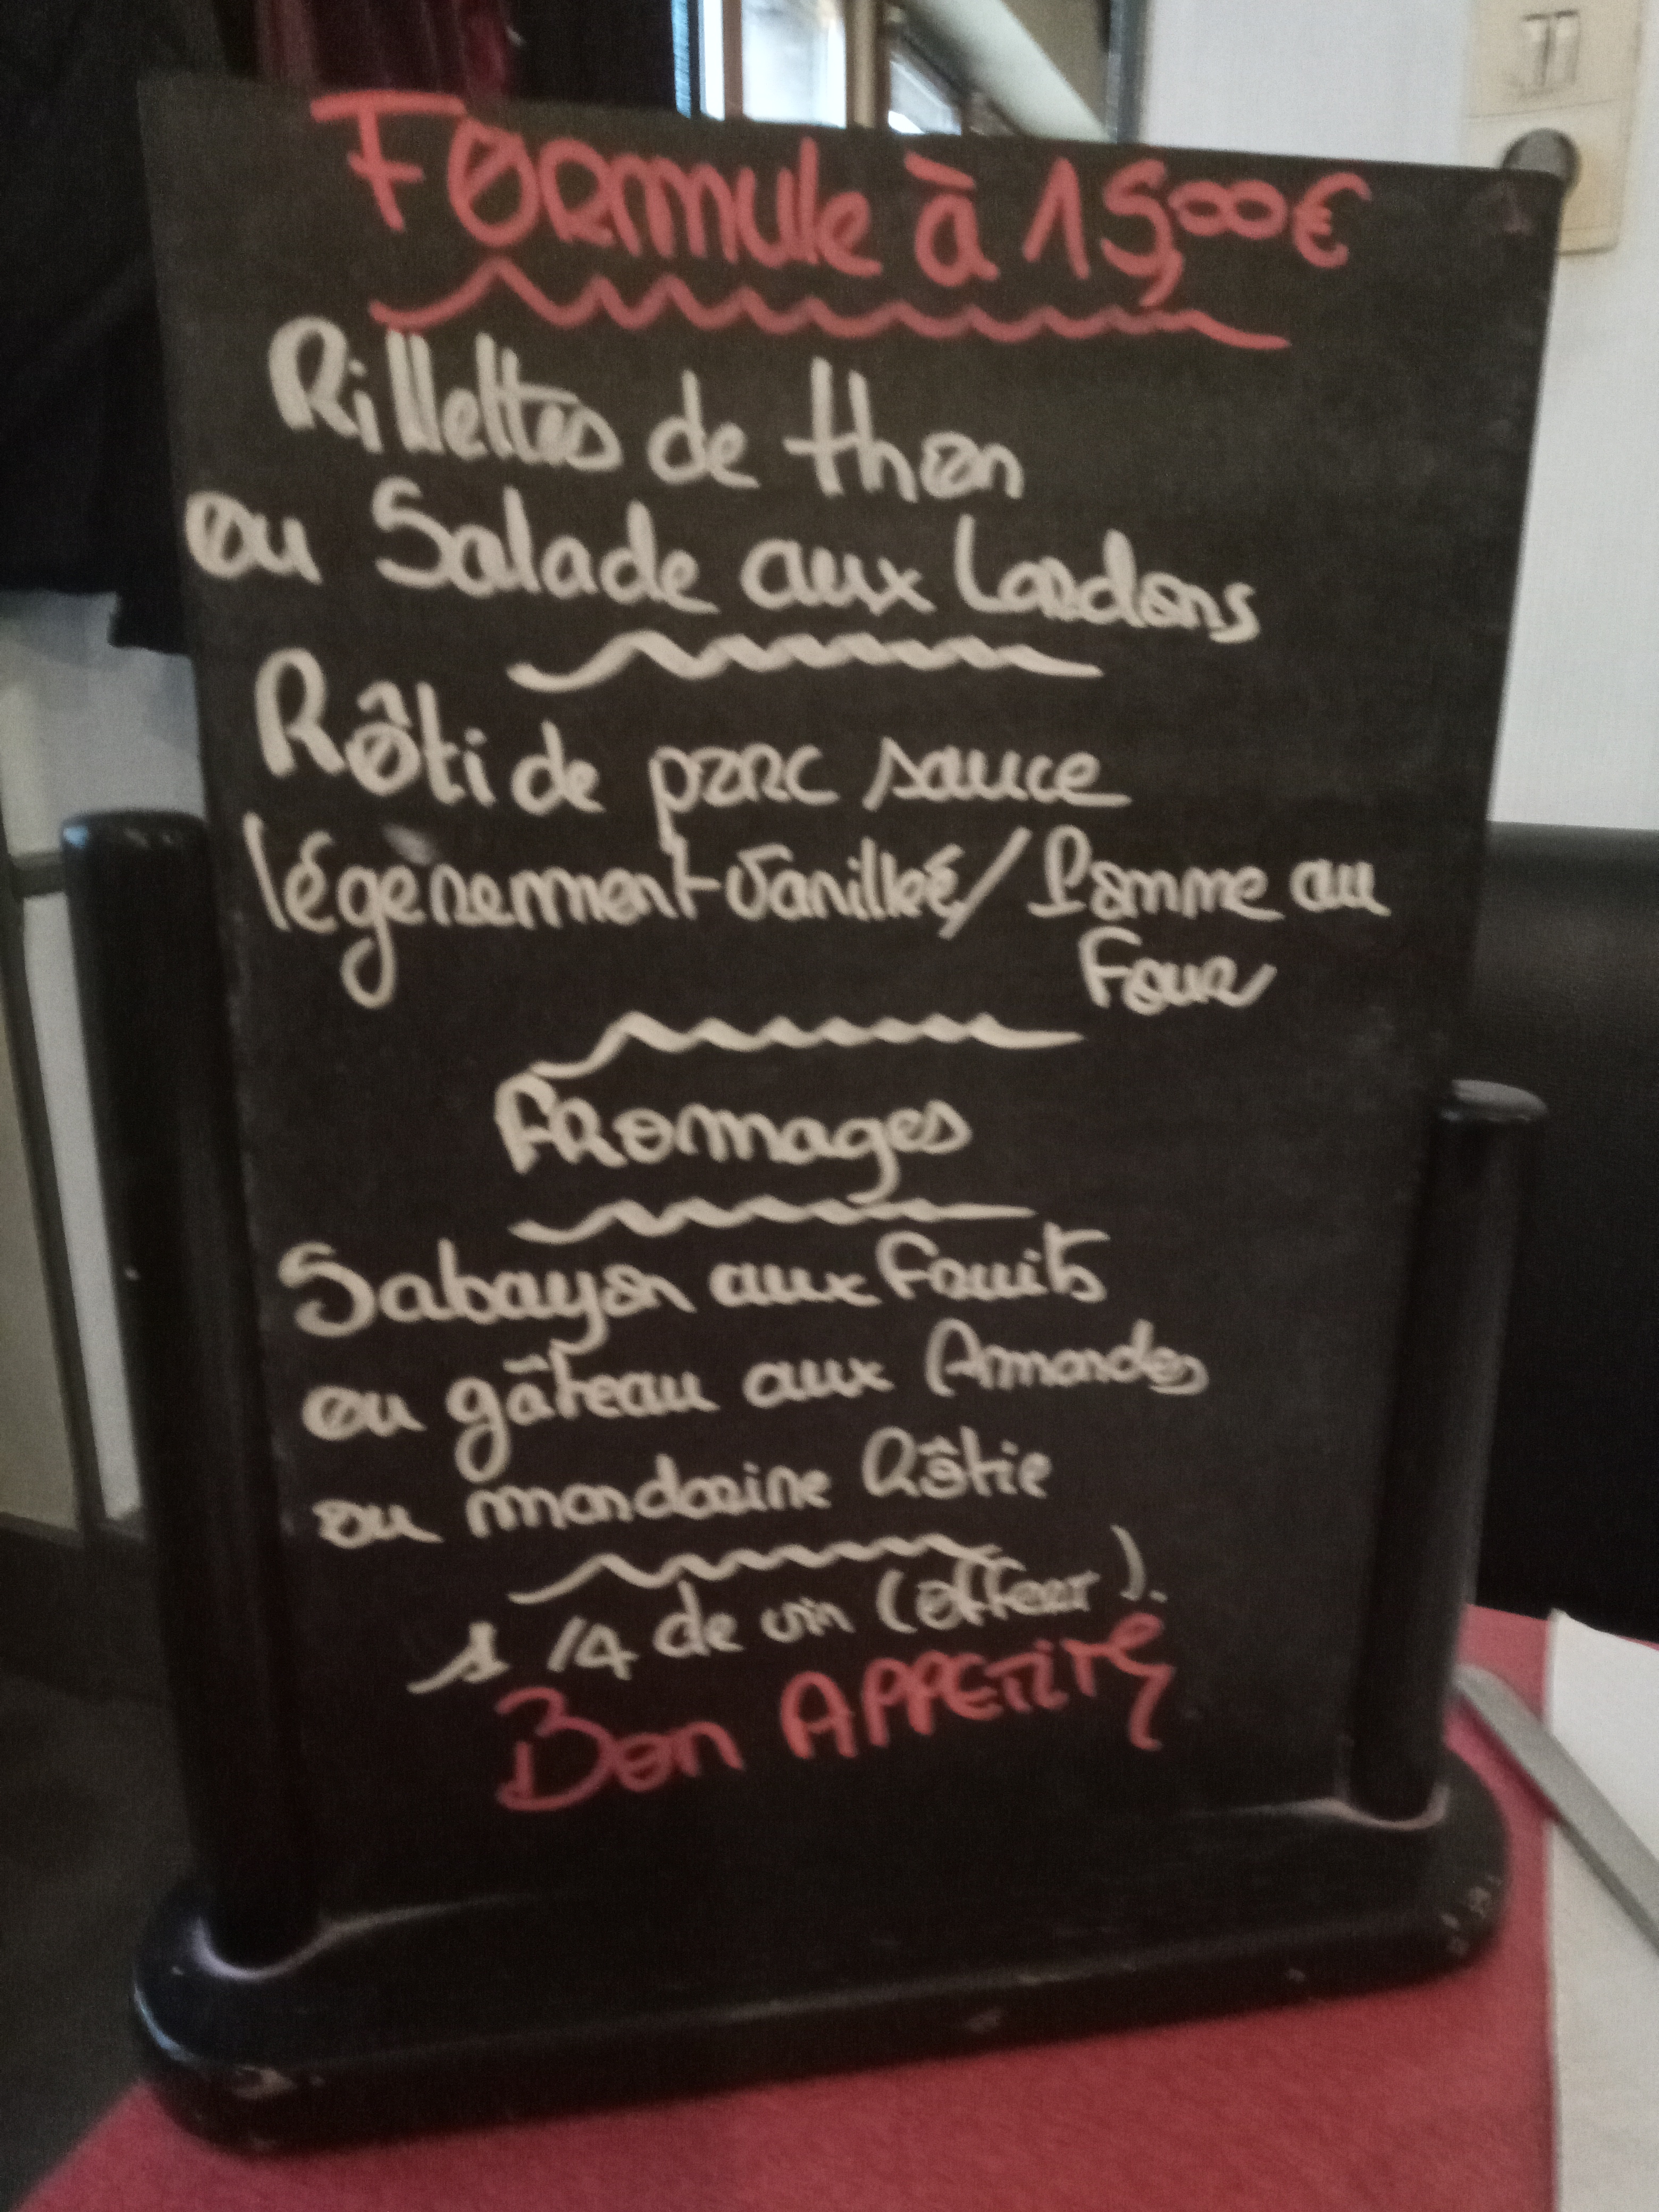 Formule à 15,00€
Rillettes de thon
ou Salade aux Lardons
Rôti de porc sauce
légèrement vanillée/ Pomme au
Four
Fromages
Sabayon aux Fruits
ou gâteau aux Amandes
ou mandarine Rôtie
1 1/4 de vin (offert).
Bon APPETIT